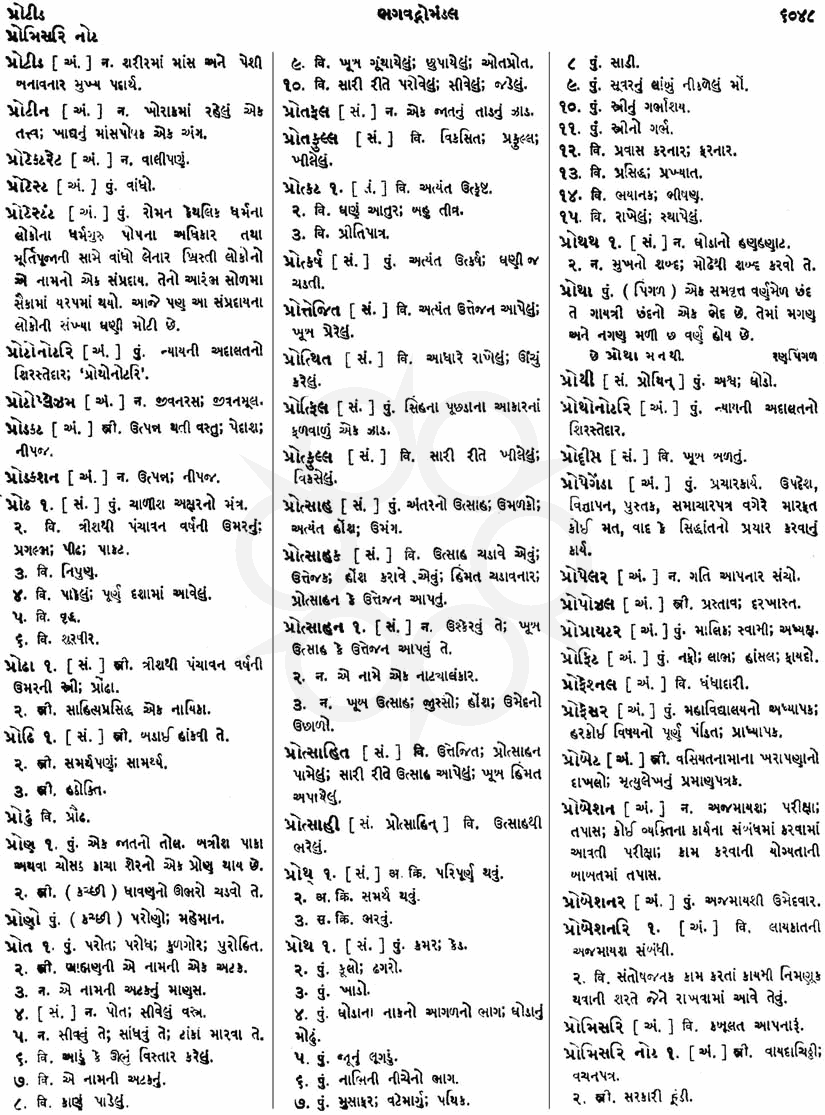 પ્રોટીડ
પ્રોમિસરિ નોટ
ભગવદ્ગોમંડલ
૬૦૪૮
પ્રોટીડ [ અં. ] ન. શરીરમાં માંસ અને પેશી
બનાવનાર મુખ્ય પદાર્થ.
પ્રોટીન [ અં. ] ન. ખોરાકમાં રહેલું એક
તત્ત્વ; ખાદ્યનું માંસપોષક એક અંગ.
પ્રોટેકટરેટ [ અં. ] ન. વાલીપણું.
પ્રોટેસ્ટ [ અં. ] પું. વાંધો.
પ્રોટેસ્ટંટ [ અં. ] પું. રોમન કેથલિક ધર્મના
લોકોના ધર્મગુરુ પોપના અધિકાર તથા
મૂર્તિપૂજાની સામે વાંધો લેનાર ખ્રિસ્તી લોકોનો
એ નામનો એક સંપ્રદાય. તેનો આરંભ સોળમા
સૈકામાં યરપમાં થયો. આજે પણ આ સંપ્રદાયના
લોકોની સંખ્યા ઘણી મોટી છે.
પ્રોટોનોટરિ [ અં. ] પું. ન્યાયની અદાલતનો
શિરસ્તેદાર; ‘પ્રોથોનોટરિ’.
પ્રોટોપ્લેઝમ [ અં. ] ન. જીવનરસ; જીવનમૂલ.
પ્રોડકટ [ અં. ] સ્ત્રી. ઉત્પન્ન થતી વસ્તુ; પેદાશ;
નીપજ.
પ્રોડકશન [ અં. ] ન. ઉત્પન્ન; નીપજ.
પ્રોઢ ૧. [ સં. ] પું. ચાળીશ અક્ષરનો મંત્ર.
૨. વિ. ત્રીશથી પંચાવન વર્ષની ઉમરનું;
પ્રગલ્ભ; પીઢ; પાકટ.
૩. વિ. નિપુણ.
૪. વિ. પાકેલું; પૂર્ણ દશામાં આવેલું.
૫. વિ. વૃદ્ધ.
૬. વિ. શૂરવીર.
પ્રોઢા ૧. [ સં. ] સ્ત્રી. ત્રીશથી પંચાવન વર્ષની
ઉમરની સ્ત્રી; પ્રૌઢા.
૨. સ્ત્રી. સાહિત્યપ્રસિદ્ધ એક નાયિકા.
પ્રોઢિ ૧. [ સં. ] સ્ત્રી. બડાઈ હાંકવી તે.
૨. સ્ત્રી. સમર્થપણું; સામર્થ્ય.
૩. સ્ત્રી. હઠોક્તિ.
પ્રોઢું વિ. પ્રૌઢ.
પ્રોણ ૧. પું. એક જાતનો તોલ. બત્રીશ પાકા
અથવા ચોસઠ કાચા શેરનો એક પ્રોણ થાય છે.
૨. સ્ત્રી. ( કચ્છી ) ધાવણનો ઊભરો ચડવો તે.
પ્રોણો પું. ( કચ્છી ) પરોણો; મહેમાન.
પ્રોત ૧. પું. પરોત; પરોધ; કુળગોર; પુરોહિત.
૨. સ્ત્રી. બ્રાહ્મણની એ નામની એક અટક.
૩. ન. એ નામની અટકનું માણસ.
૪. [ સં. ] ન. પોત; સીવેલું વસ્ત્ર.
૫. ન. સીવવું તે; સાંધવું તે; ટાંકા મારવા તે.
૬. વિ. આડું કે ઊભું વિસ્તાર કરેલું.
૭. વિ. એ નામની અટકનું.
૮. વિ. કાણું પાડેલું.
૯. વિ. ખૂબ ગૂંથાયેલું; છુપાયેલું; ઓતપ્રોત.
૧૦. વિ. સારી રીતે પરોવેલું; સીવેલું; જડેલું.
પ્રોતફલ [ સં. ] ન. એક જાતનું તાડનું ઝાડ.
પ્રોતફુલ્લ [ સં. ] વિ. વિકસિત; પ્રફુલ્લ;
ખીલેલું.
પ્રોત્કટ ૧. [ સં. ] વિ. અત્યંત ઉત્કૃષ્ટ.
૨. વિ. ઘણું આતુર; બહુ તીવ્ર.
૩. વિ. પ્રીતિપાત્ર.
પ્રોત્કર્ષ [ સં. ] પું. અત્યંત ઉત્કર્ષ; ઘણી જ
ચડતી.
પ્રોત્તેજિત [ સં. ] વિ. અત્યંત ઉત્તેજન આપેલું;
ખૂબ પ્રેરેલું.
પ્રોત્થિત [ સં. ] વિ. આધારે રાખેલું; ઊંચું
કરેલું.
પ્રોત્ફિલ [ સં. ] પું. સિંહના પૂછડાના આકારનાં
ફળવાળું એક ઝાડ.
પ્રોત્ફુલ્લ [ સં. ] વિ. સારી રીતે ખીલેલું;
વિકસેલું.
પ્રોત્સાહ [ સં. ] પું. અંતરનો ઉત્સાહ; ઉમળકો;
અત્યંત હોંશ; ઉમંગ.
પ્રોત્સાહક [ સં. ] વિ. ઉત્સાહ ચડાવે એવું;
ઉત્તેજક; હોંશ કરાવે એવું; હિંમત ચડાવનાર;
પ્રોત્સાહન કે ઉત્તેજન આપતું.
પ્રોત્સાહન ૧. [ સં. ] ન. ઉશ્કેરવું તે; ખૂબ
ઉત્સાહ કે ઉત્તેજન આપવું તે.
૨. ન. એ નામે એક નાટ્યાલંકાર.
૩. ન. ખૂબ ઉત્સાહ; જુસ્સો; હોંશ; ઉમેદનો
ઉછાળો.
પ્રોત્સાહિત [ સં. ] વિ. ઉત્તેજિત; પ્રોત્સાહન
પામેલું; સારી રીતે ઉત્સાહ આપેલું; ખૂબ હિંમત
અપાયેલું.
પ્રોત્સાહી [ સં. પ્રોત્સાહિન્ ] વિ. ઉત્સાહથી
ભરેલું.
પ્રોથ્ ૧. [ સં. ] અ. ક્રિ. પરિપૂર્ણ થવું.
૨. અ. ક્રિ. સમર્થ થવું.
૩. સ. ક્રિ. ભરવું.
પ્રોથ ૧. [ સં. ] પું. કમર; કેડ.
૨. પું. કૂલો; ઢગરો.
૩. પું. ખાડો.
૪. પું. ઘોડાના નાકનો આગળનો ભાગ; ઘોડાનું
મોઢું.
૫. પું. જૂનું લૂગડું.
૬. પું. નાભિની નીચેનો ભાગ.
૭. પું. મુસાફર; વટેમાર્ગુ; પથિક.
૮ પું. સાડી.
૯. પું. સૂવરનું લાંબું નીકળેલું મોં.
૧૦. પું. સ્ત્રીનું ગર્ભાશય.
૧૧. પું. સ્ત્રીનો ગર્ભ.
૧૨. વિ. પ્રવાસ કરનાર; ફરનાર.
૧૩. વિ. પ્રસિદ્ધ; પ્રખ્યાત.
૧૪. વિ. ભયાનક; ભીષણ.
૧૫. વિ. રાખેલું; સ્થાપેલું.
પ્રોથથ ૧. [ સં. ] ન. ઘોડાનો હણહણાટ.
૨. ન. મુખનો શબ્દ; મોઢેથી શબ્દ કરવો તે.
પ્રોથા પું. ( પિંગળ ) એક સમવૃત્ત વર્ણમેળ છંદ
તે ગાયત્રી છંદનો એક ભેદ છે. તેમાં મગણ
અને નગણ મળી છ વર્ણ હોય છે.
છે પ્રોથા મનથી. રણપિંગળ
પ્રોથી [ સં. પ્રોથિન્ ] પું. અશ્વ; ઘોડો.
પ્રોથોનોટરિ [ અં. ] પું. ન્યાયની અદાલતનો
શિરસ્તેદાર.
પ્રોદ્દીપ્ત [ સં. ] વિ. ખૂબ બળતું.
પ્રોપેગેંડા [ અં. ] પું. પ્રચારકાર્ય. ઉપદેશ,
વિજ્ઞાપન, પુસ્તક, સમાચારપત્ર વગેરે મારફત
કોઈ મત, વાદ કે સિદ્ધાંતનો પ્રચાર કરવાનું
કાર્ય.
પ્રોપેલર [ અં. ] ન. ગતિ આપનાર સંચો.
પ્રોપોઝલ [ અં. ] સ્ત્રી. પ્રસ્તાવ; દરખાસ્ત.
પ્રોપ્રાયટર [ અં. ] પું. માલિક; સ્વામી; અધ્યક્ષ.
પ્રોફિટ [ અં. ] પું. નફો; લાભ; હાંસલ; ફાયદો.
પ્રોફેશનલ [ અં. ] વિ. ધંધાદારી.
પ્રોફેસર [ અં. ] પું. મહાવિદ્યાલયનો અધ્યાપક;
હરકોઈ વિષયનો પૂર્ણ પંડિત; પ્રાધ્યાપક.
પ્રોબેટ [ અં. ] સ્ત્રી. વસિયતનામાના ખરાપણાનો
દાખલો; મૃત્યુલેખનું પ્રમાણપત્રક.
પ્રોબેશન [ અં. ] ન. અજમાયશ; પરીક્ષા;
તપાસ; કોઈ વ્યક્તિના કાર્યના સંબંધમાં કરવામાં
આવતી પરીક્ષા; કામ કરવાની યોગ્યતાની
બાબતમાં તપાસ.
પ્રોબેશનર [ અં. ] પું. અજમાયશી ઉમેદવાર.
પ્રોબેશનરિ ૧. [ અં. ] વિ. લાયકાતની
અજમાયશ સંબંધી.
૨. વિ. સંતોષજનક કામ કરતાં કાયમી નિમણૂક
થવાની શરતે જેને રાખવામાં આવે તેવું.
પ્રોમિસરિ [ અં. ] વિ. કબૂલત આપનારું.
પ્રોમિસરિ નોટ ૧. [ અં. ] સ્ત્રી. વાયદાચિઠ્ઠી;
વચનપત્ર.
૨. સ્ત્રી. સરકારી હૂંડી.